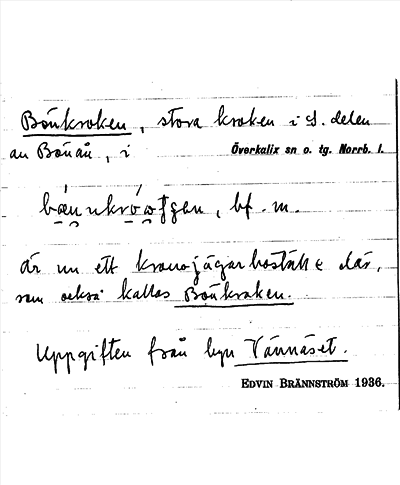 Bönkroken, stora kroken i S. delen
av Bönån, i Överkalix sn o. tg. Norrb. l.
bf. m.
där nu ett kronojägarboställe där,
som också kallas Bönkroken.
Uppgiften från byn Vännäset.
EDVIN BRÄNNSTRÖM 1936.